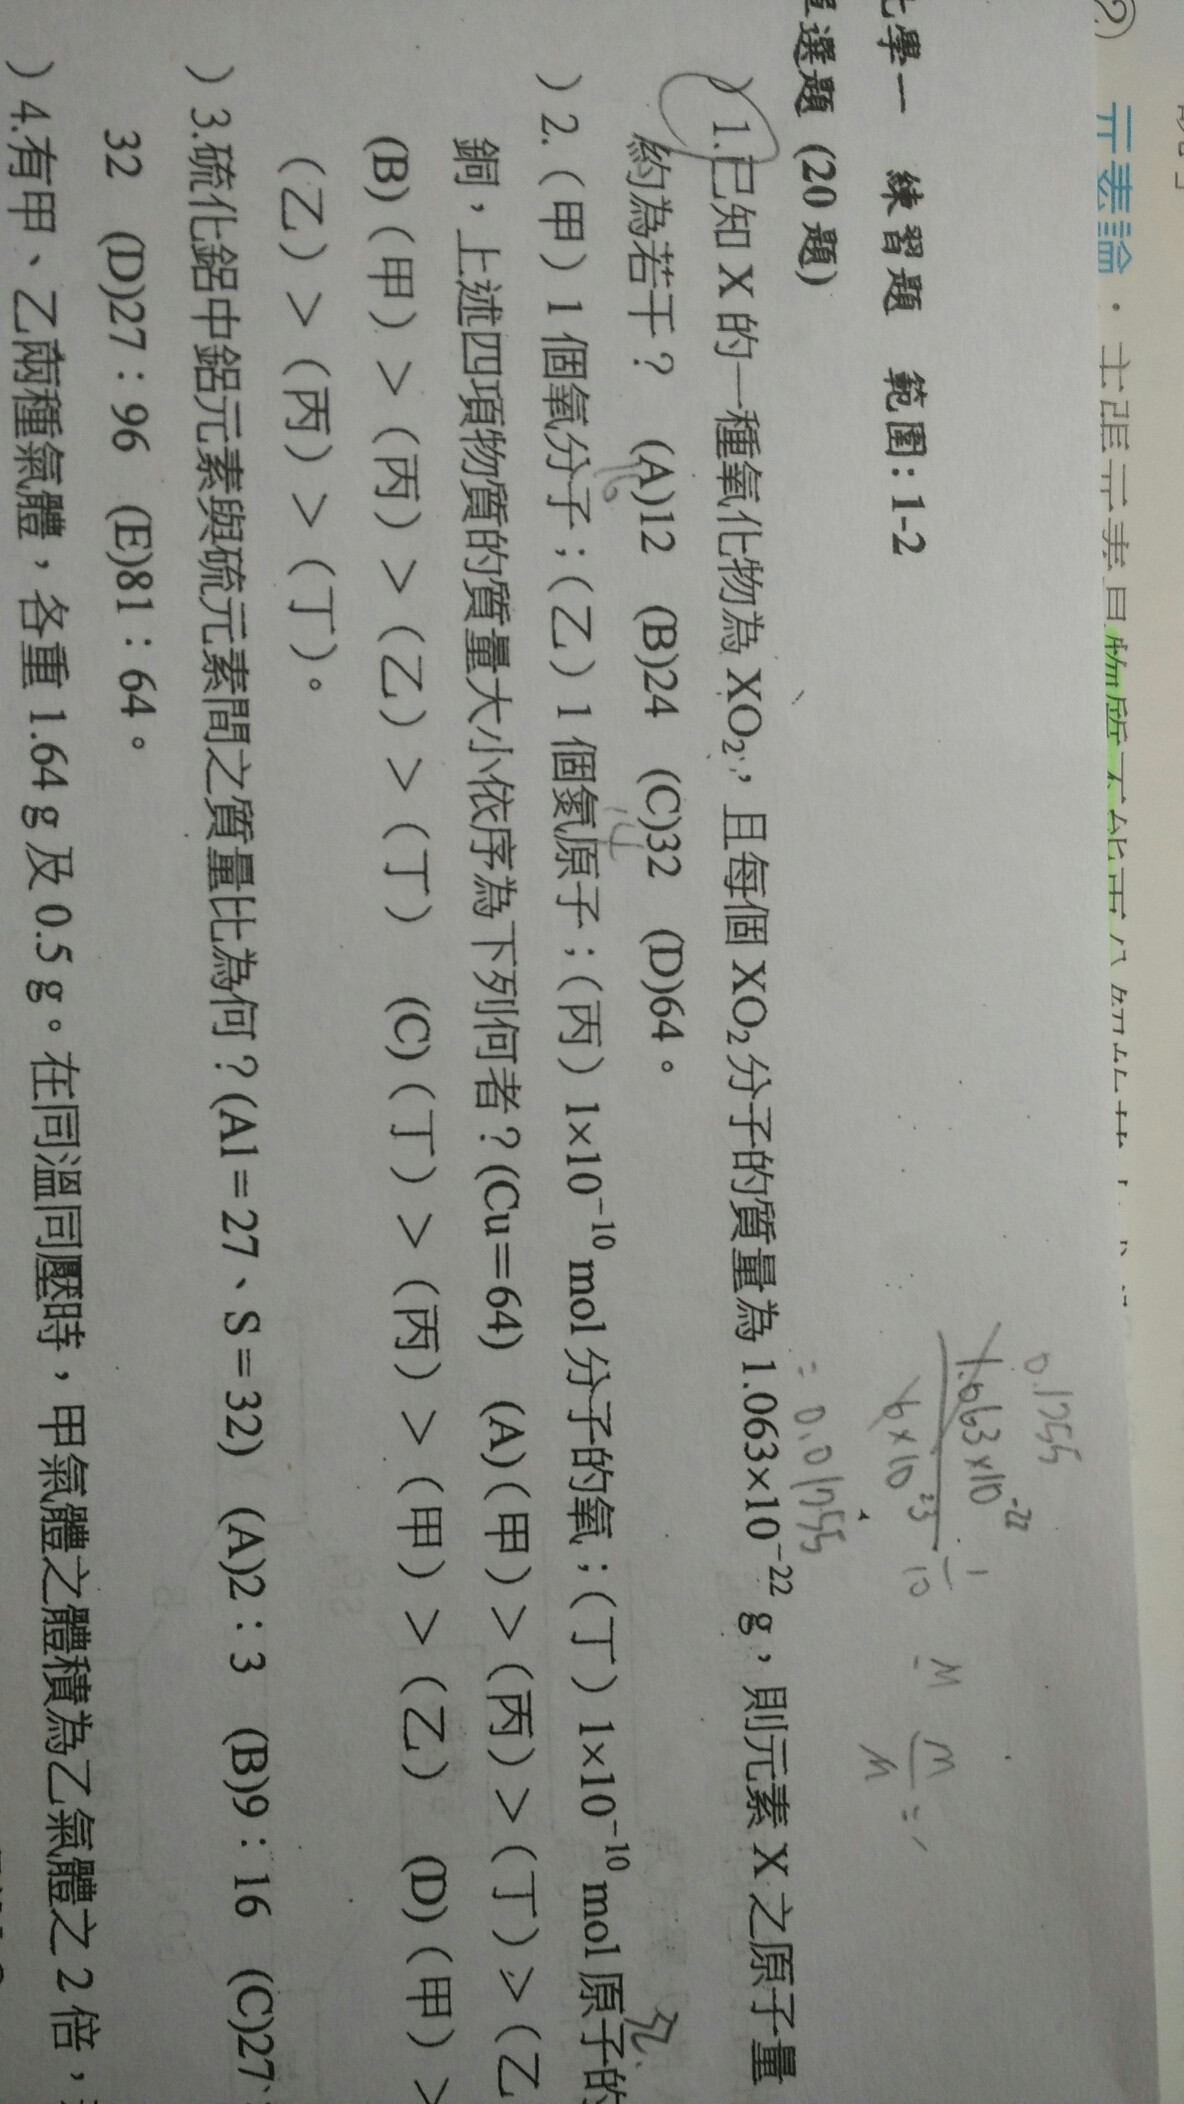 元素論．主張元素是物質不能再分解的基本
化學一 練習題 範圍：1-2
選題 (20 題)
0.1755
1.063×10⁻²²
6×10²³
= 0.01755
)1.已知 X 的一種氧化物為 XO₂，且每個 XO₂ 分子的質量為 1.063×10⁻²² g，則元素 X 之原子量
約為若干？ (A)12 (B)24 (C)32 (D)64。
)2.（甲）1 個氧分子；（乙）1 個氮原子；（丙）1×10⁻¹⁰ mol 分子的氧；（丁）1×10⁻¹⁰ mol 原子的
銅，上述四項物質的質量大小依序為下列何者？(Cu＝64) (A)（甲）＞（丙）＞（丁）＞（乙
(B)（甲）＞（丙）＞（乙）＞（丁） (C)（丁）＞（丙）＞（甲）＞（乙） (D)（甲）＞
（乙）＞（丙）＞（丁）。
)3.硫化鋁中鋁元素與硫元素間之質量比為何？(Al＝27、S＝32) (A)2：3 (B)9：16 (C)27：
32 (D)27：96 (E)81：64。
)4.有甲、乙兩種氣體，各重 1.64 g 及 0.5 g。在同溫同壓時，甲氣體之體積為乙氣體之 2 倍，